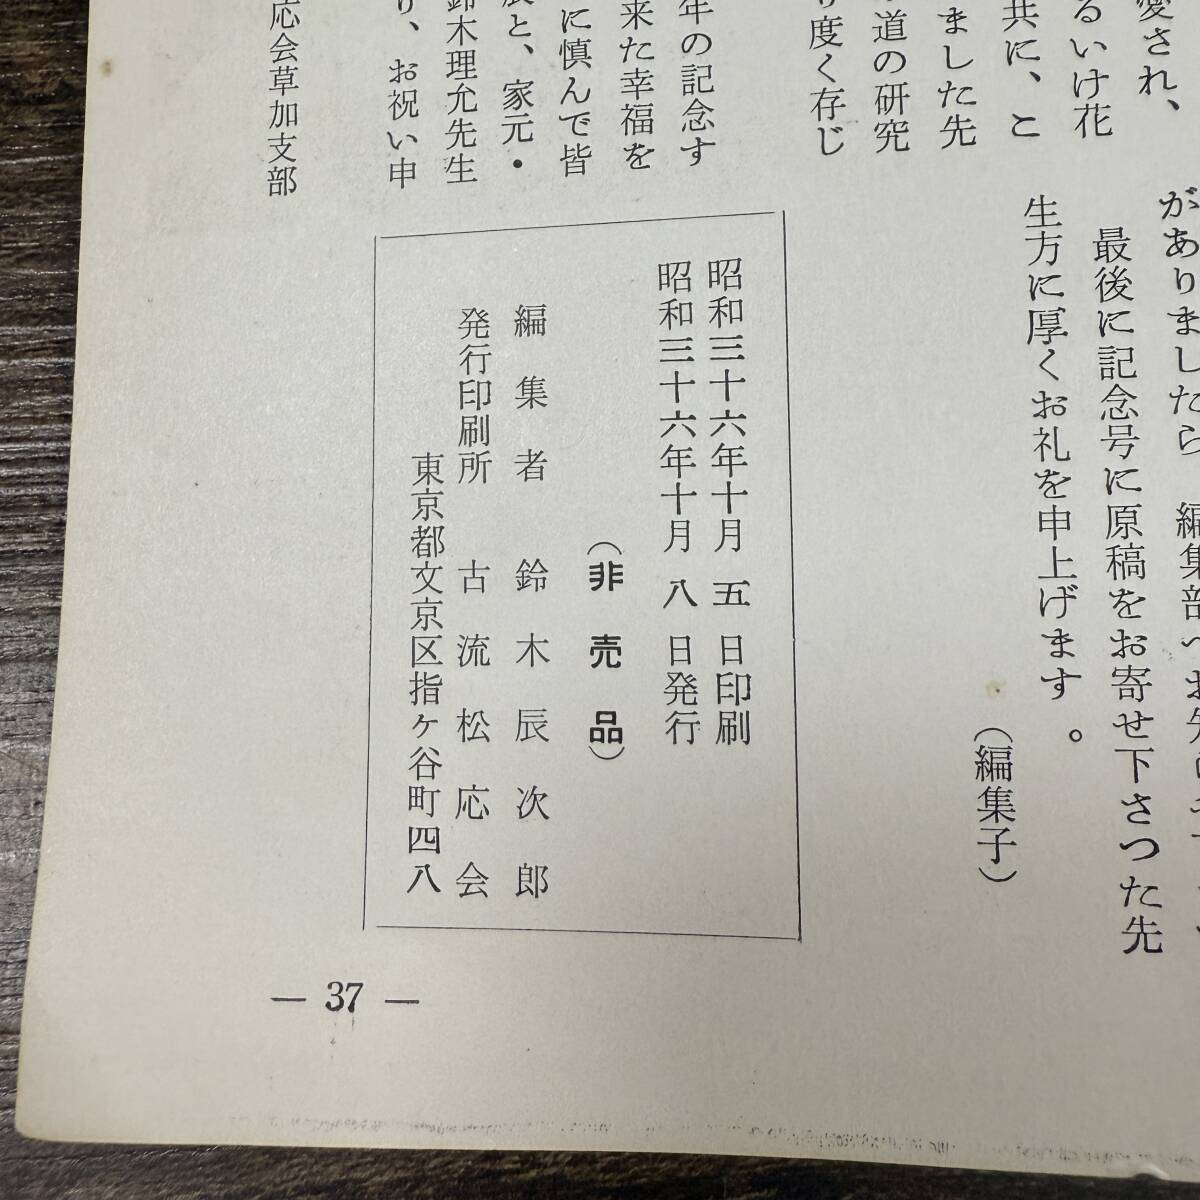 愛され、
るいけ花
共に、こ
ました先
道の研究
り度く存じ
年の記念す
来た幸福を
に慎んで皆
と、家元・
鈴木理允先生
り、お祝い申
応会草加支部
がありましたら
編集部
最後に記念号に原稿をお寄せ下さつた先
生方に厚くお礼を申上げます。
（編集子）
昭和三十六年十月五日印刷
昭和三十六年十月八日発行
（非売品）
編集者 鈴木辰次郎
発行印刷所 古流松応会
東京都文京区指ヶ谷町四八
― 37 ―